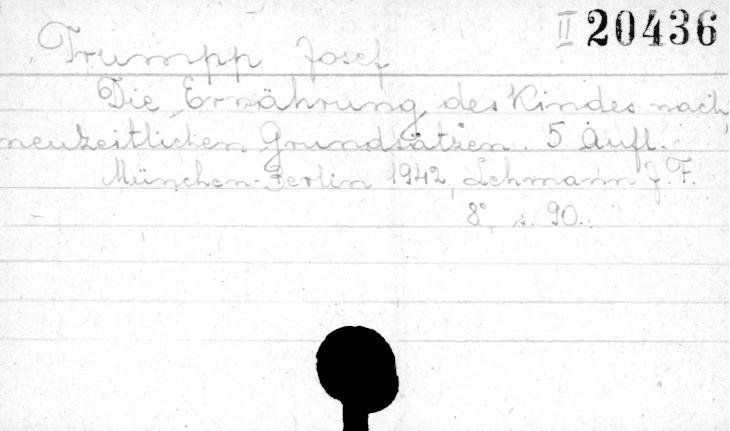 II 20436
Trumpp Josef
Die Ernährung des Kindes nach
neuzeitlichen Grundsätzen. 5 Aufl.
München-Berlin 1942, Lehmann J. F.
8°, s. 90.